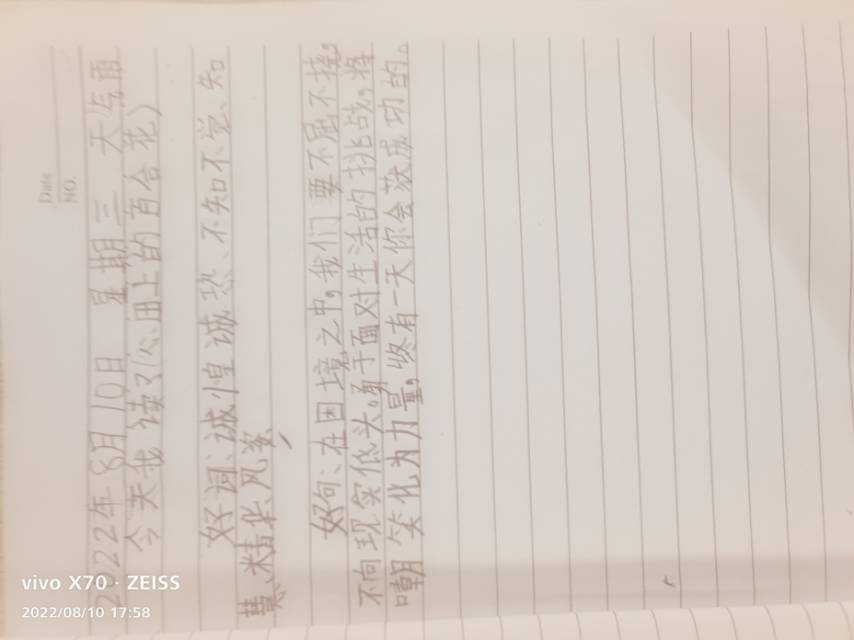 Date
NO.
2022年8月10日 星期三 天气雨
今天我读了《心田上的百合花》
好词、诚惶诚恐、不知不觉、知
慧、精华、风姿
好句、在困境之中,我们要不屈不挠。
不向现实低头。勇于面对生活的挑战。将
嘲笑化为力量。终有一天你会获成功的。
vivo X70 · ZEISS
2022/08/10 17:58